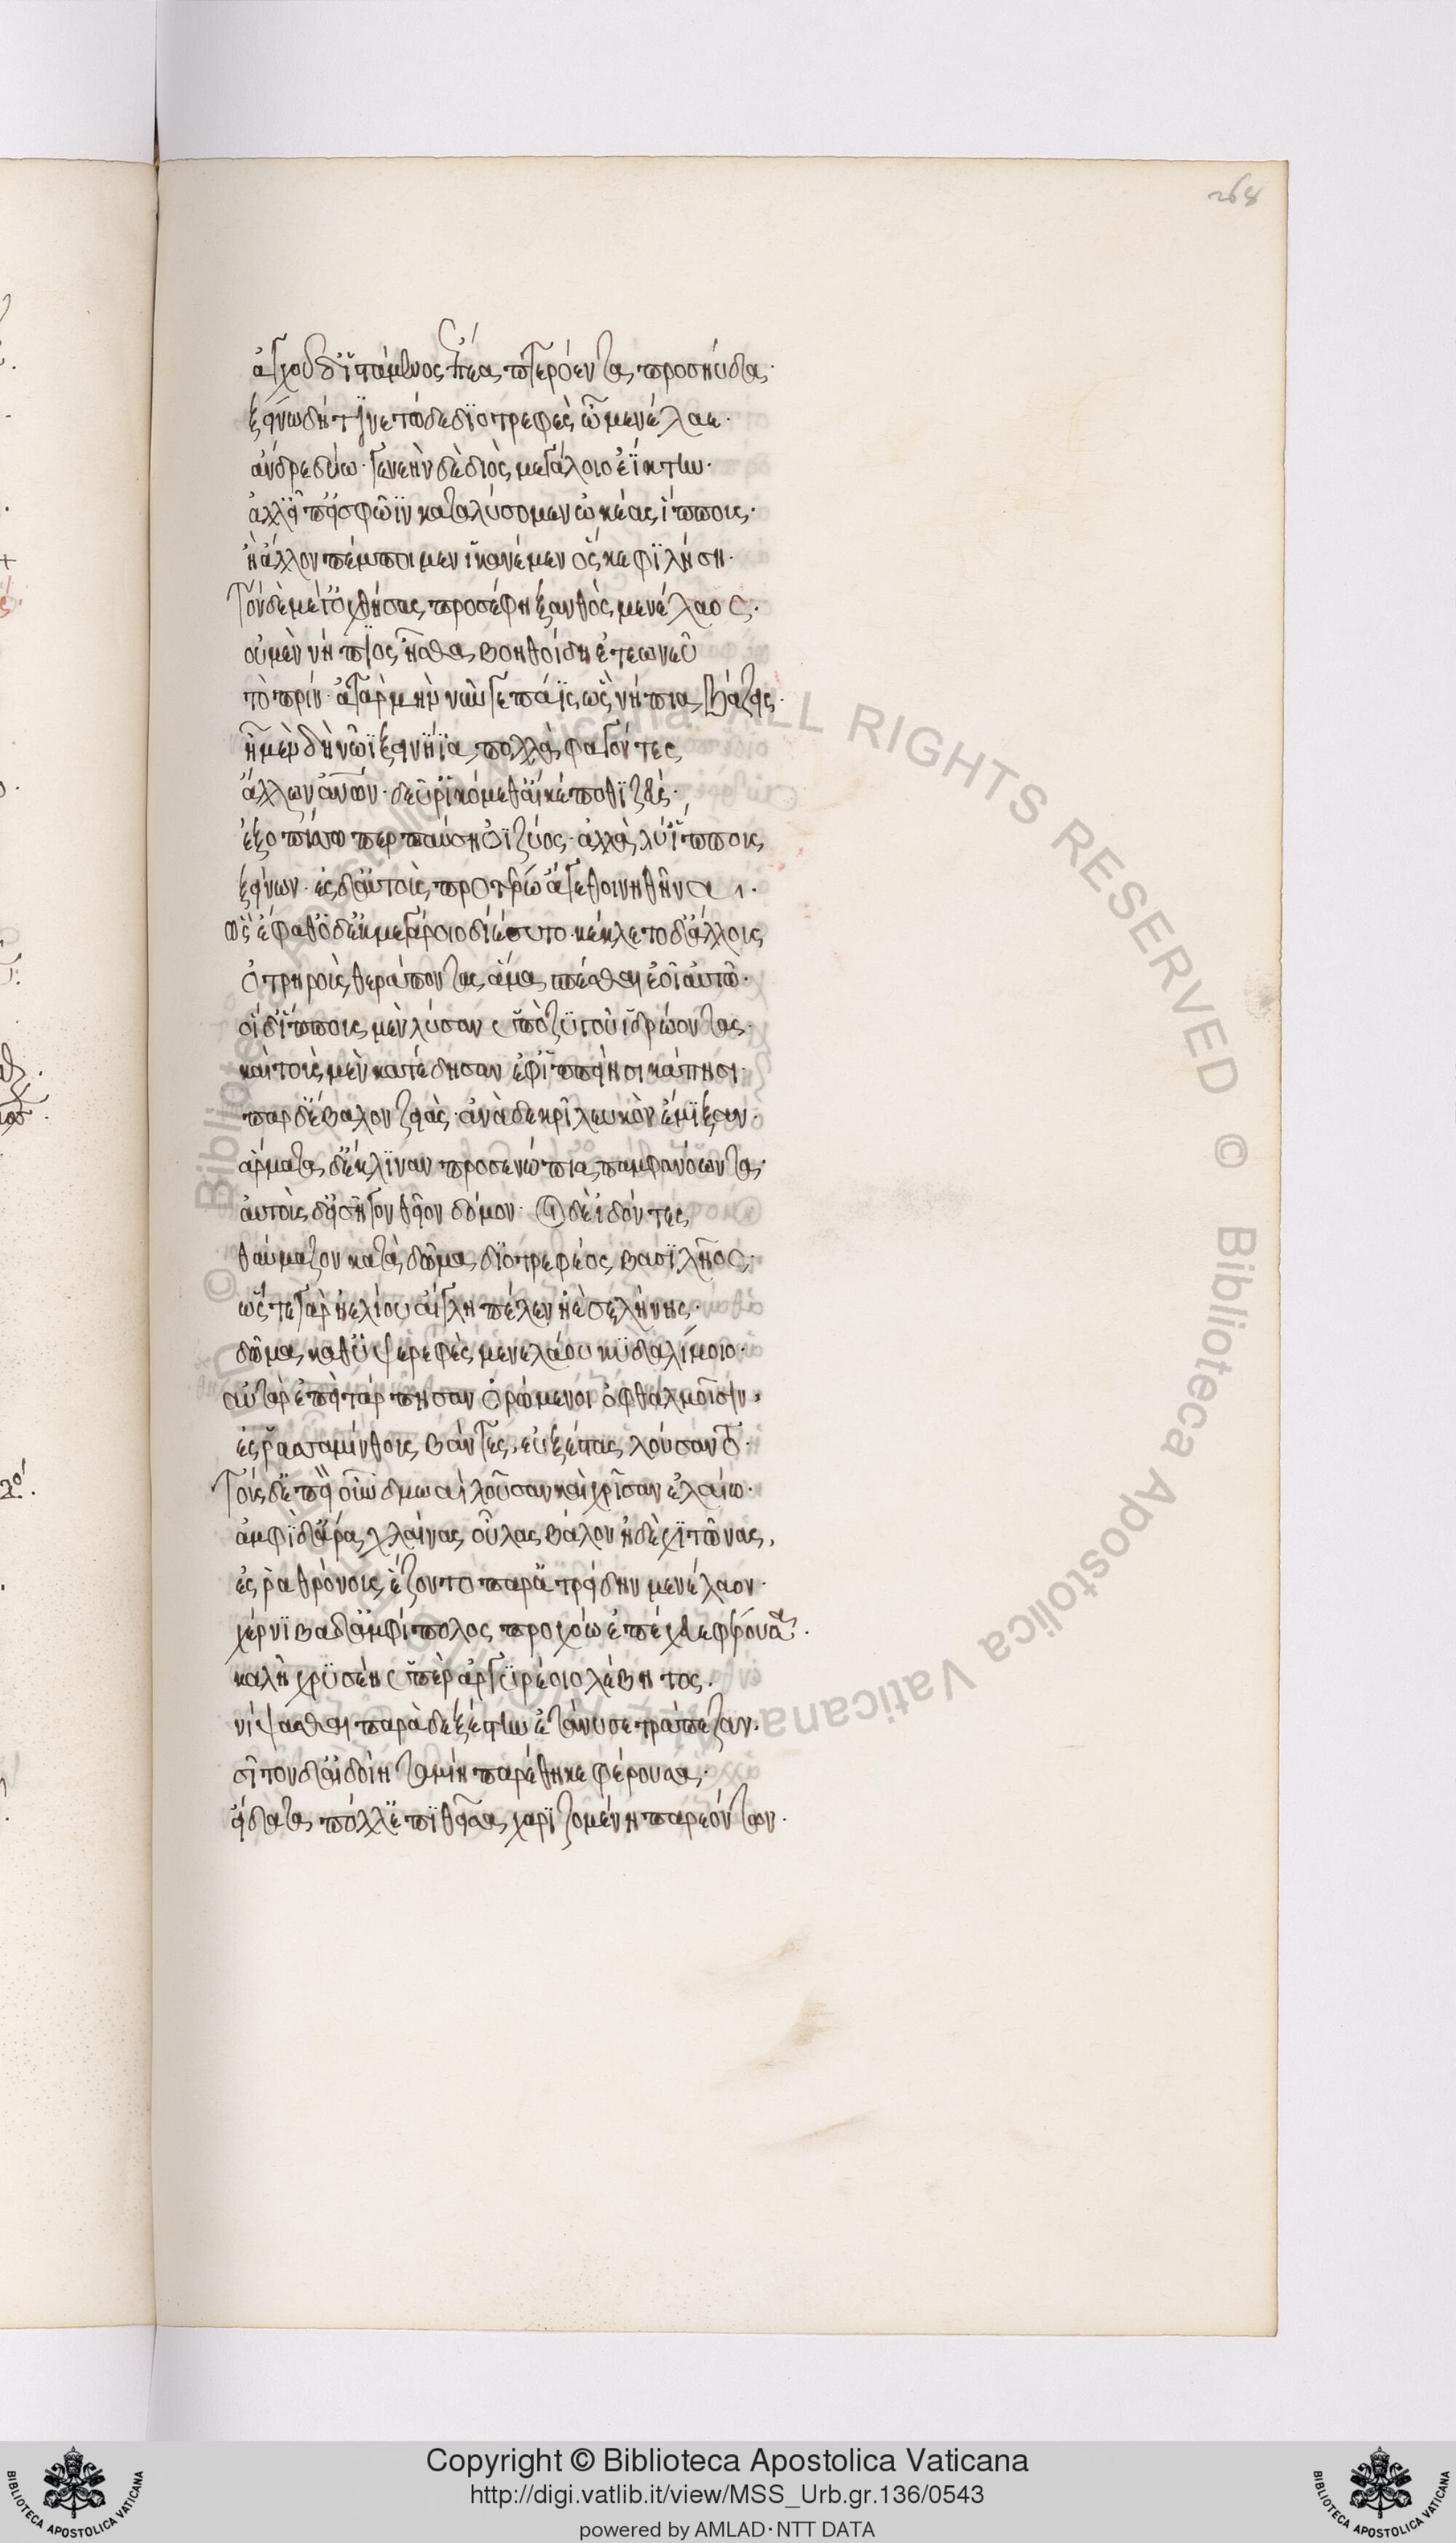 268
ἀγχοῦ δ' ἱστάμενος ἔπεα πτερόεντα προσηύδα·
ξείνω δή τινε τώδε διοτρεφὲς ὦ μενέλαε·
ἄνδρε δύω· γενεὴν δὲ διὸς μεγάλοιο ἔϊκτην·
ἀλλ' εἴπ' εἰ σφῶϊν καταλύσομεν ὠκέας ἵππους·
ἢ ἄλλον πέμπωμεν ἱκανέμεν ὅς κε φιλήση·
τὸν δὲ μέγ' ὀχθήσας προσέφη ξανθὸς μενέλαος·
οὐ μὲν νήπιος ἦσθα βοηθοίδη ἐτεωνεῦ
τὸ πρίν· ἀτὰρ μὴν νῦν γε πάϊς ὣς νήπια βάζεις·
ἦ μὲν δὴ νῶϊ ξεινήϊα πολλὰ φαγόντες
ἄλλων ἀνθρώπων· δεῦρ' ἱκόμεθ' αἴ κέ ποθι ζεὺς·
ἐξοπίσω περ παύση ὀϊζύος· ἀλλὰ λύ' ἵππους
ξείνων· ἐς δ' αὐτοὺς προτέρω ἄγε θοινηθῆναι·
ὣς ἔφαθ' ὁ δ' ἐκ μεγάροιο διέσυτο· κέκλετο δ' ἄλλους
ὀτρηροὺς θεράποντας ἅμα σπέσθαι ἑοῖ αὐτῶ·
οἱ δ' ἵππους μὲν λύσαν ὑπὸ ζυγοῦ ἱδρώοντας·
καὶ τοὺς μὲν κατέδησαν ἐφ' ἱππείησι κάπησι·
παρ δ' ἔβαλον ζειὰς· ἀνὰ δὲ κρῖ λευκὸν ἔμιξαν·
ἅρματα δ' ἔκλιναν προσενώπια παμφανόωντα·
αὐτοὺς δ' εἰσῆγον θεῖον δόμον· οἱ δὲ ἰδόντες
θαύμαζον κατὰ δῶμα διοτρεφέος βασιλῆος·
ὥς τε γὰρ ἠελίου αἴγλη πέλεν ἠὲ σελήνης·
δῶμα καθ' ὑψερεφὲς μενελάου κυδαλίμοιο·
αὐτὰρ ἐπεὶ τάρπησαν ὁρώμενοι ὀφθαλμοῖσιν,
ἔς ῥ' ἀσαμίνθους βάντες, εὐξέστας λούσαντο·
τοὺς δ' ἐπεὶ οὖν δμωαὶ λοῦσαν καὶ χρῖσαν ἐλαίω·
ἀμφὶ δ' ἄρα χλαίνας οὔλας βάλον ἠδὲ χιτῶνας,
ἔς ῥα θρόνους ἕζοντο παρ' ἀτρείδην μενέλαον·
χέρνιβα δ' ἀμφίπολος προχόω ἐπέχευε φέρουσα·
καλῆ χρυσέη ὑπὲρ ἀργυρέοιο λέβητος.
νίψασθαι παρὰ δὲ ξέστην ἐτάνυσε τράπεζαν.
σῖτον δ' αἰδοίη ταμίη παρέθηκε φέρουσα·
εἴδατα πόλλ' ἐπιθεῖσα χαριζομένη παρεόντων·
Copyright © Biblioteca Apostolica Vaticana
http://digi.vatlib.it/view/MSS_Urb.gr.136/0543
powered by AMLAD·NTT DATA